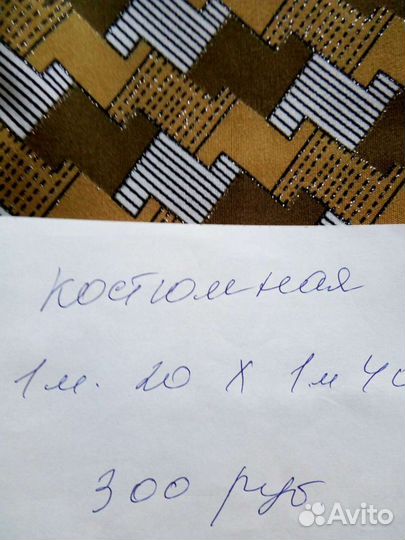 костюмная
1 м. 20 х 1 м 40
300 руб
Avito